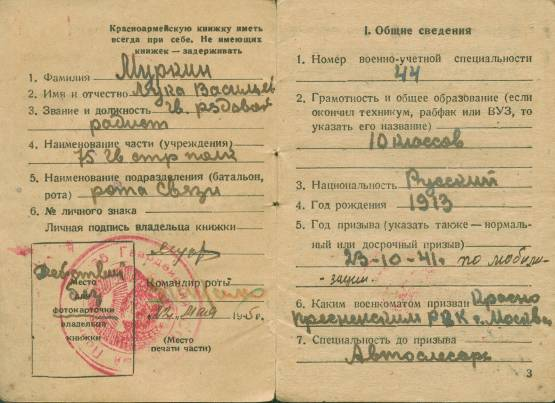 Красноармейскую книжку иметь
всегда при себе. Не имеющих
книжек — задерживать
1. Фамилия Муркин
2. Имя и отчество Лука Васильев
3. Звание и должность гв. рядовой
радист
4. Наименование части (учреждения)
75 гв стр полк
5. Наименование подразделения (батальон,
рота) рота Связи
6. № личного знака
Личная подпись владельца книжки
Место
фотокарточки
владельца
книжки
Командир роты
мая 194
(Место
печати части)
I. Общие сведения
1. Номер военно-учетной специальности
44
2. Грамотность и общее образование (если
окончил техникум, рабфак или ВУЗ, то
указать его название)
10 классов
3. Национальность Русский
4. Год рождения 1913
5. Год призыва (указать также — нормаль-
ный или досрочный призыв)
23-10-41. по мобили-
зации.
6. Каким военкоматом призван Красно
Пресненским РВК г. Москва
7. Специальность до призыва
Автослесарь
3